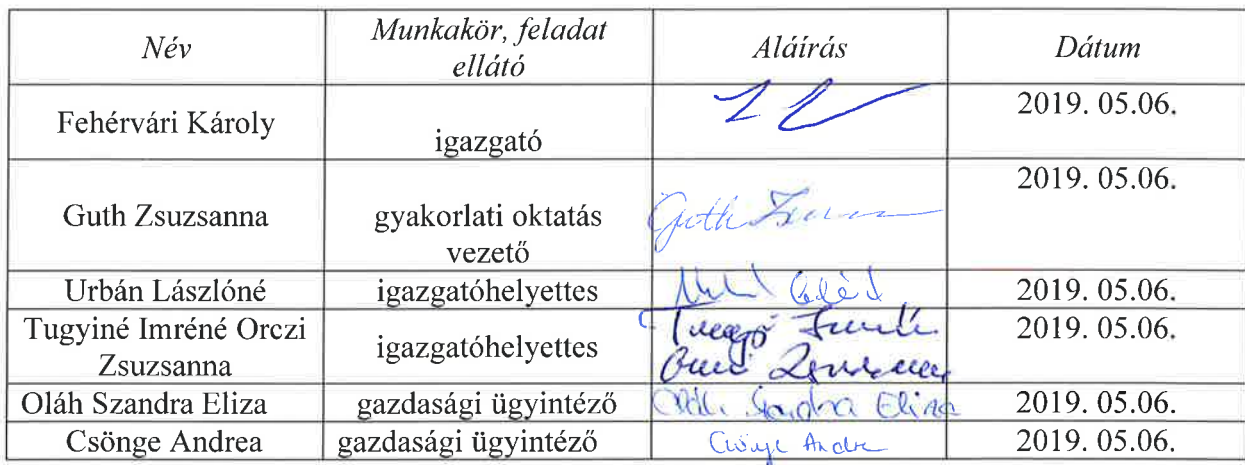 Név
Munkakör, feladat
ellátó
Aláírás
Dátum
Fehérvári Károly
igazgató
2019. 05.06.
Guth Zsuzsanna
gyakorlati oktatás
vezető
Guth
2019. 05.06.
Urbán Lászlóné
igazgatóhelyettes
2019. 05.06.
Tugyiné Imréné Orczi
Zsuzsanna
igazgatóhelyettes
2019. 05.06.
Oláh Szandra Eliza
gazdasági ügyintéző
Oláh Szandra Eliza
2019. 05.06.
Csönge Andrea
gazdasági ügyintéző
Csönge Andre
2019. 05.06.